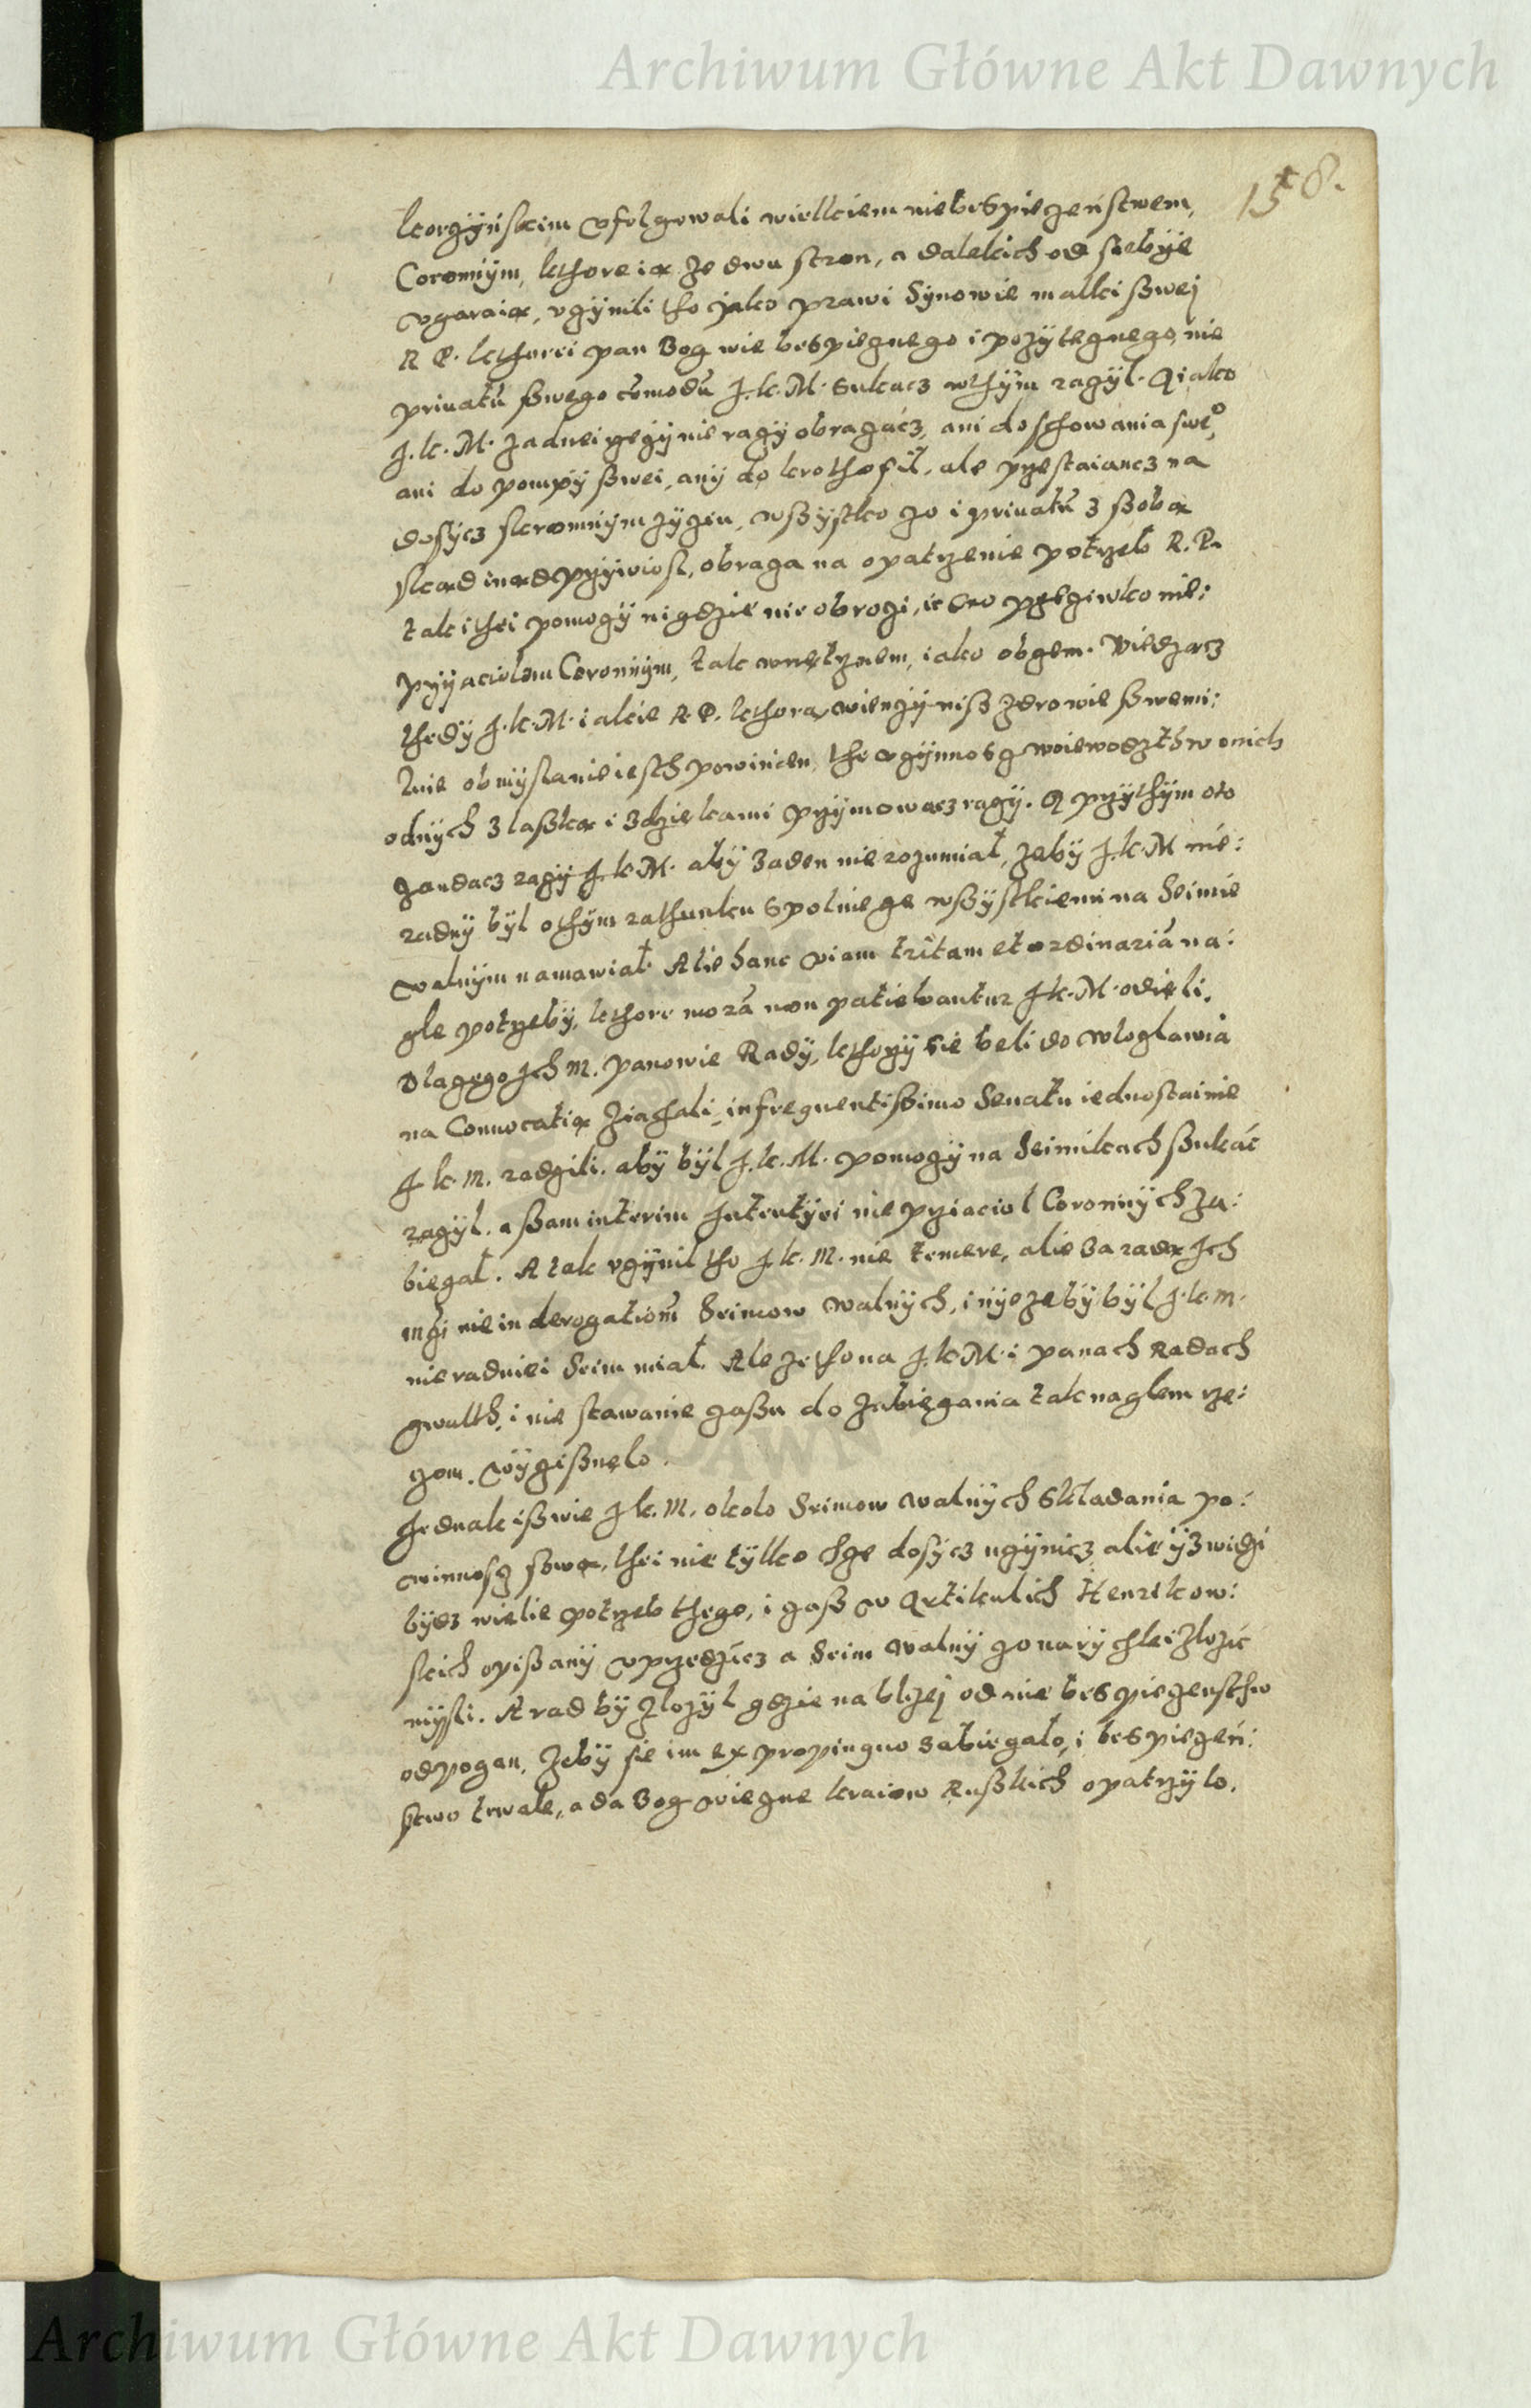 Archiwum Główne Akt Dawnych
158.
korczyńskim vfolgowali wielkiem niebespieczeństwem,
Coronnym, kthore iα ze dwu stron, a dalekich od siebye
vgaraiα, vczynili tho jako prawi Synowie matki ßwej
R P. kthorei pan Bog wie bespiecznego i pozytecznego, nie
priuatū ßwego cōmodū J. k. M. sukacz wthym raczyl. A iako
J. k. M. zadnei części nie raczy obracacz, ani do schowania sweo,
ani do pompy ßwei, any do krothofil, ale przestaiancz na
dosycz skromnym zyciu, wßystko co i priuatū z ßobα
skαd inαd przyiviosl, obraca na opatrzenie potrzeb R. P.
tak i thei pomocy nigdzie nie obroci, ieno przeciwko nie:
pryiaciolom Coronnym, tak wnętrznem, iako obcem. Wiedzacz
thedy J. k. M. iakie R. P. kthora, wiency niß zdrowie ßwemi:
lnie obmyslanie iesth powinien, the vczynnosc woiewodzthw onich
odnych z laßkα i z dziekami przymowacz raczy. A przythym oto
zandacz raczy J. k. M. aby zaden nie rozumiał, zeby J. k. M nie:
radny byl othym rathunku spolnie ze wßystkiemi na Seimie
walnym namawiał. Alie hanc viam tritam et ordinariā na:
gle potrzeby, kthore morā non patiebantur J k. M. odięli.
Dlaczego Jch M. panowie Rady, kthorzy sie beli do Wloclawia
na Conuocatiα ziachali, in frequentißimo Senatu iednostainie
J k. M. radzili. aby byl J. k. M. pomocy na Seimikach ßukać
raczyl. a ßam interim Jntentyei nieprziaciol Coronnych za:
biegał. A tak vczynil tho J k. M. nie temere, alie za radα Jch
mći nie in derogationē Seimow walnych, i nyezeby byl J. k. M.
nieradniei Seim miał. Ale ze thona J. k. M. i panach Radach
gwalth, i nie stawanie czaßu do zabiegania tak naglem rze:
czom. wycißnęlo.
Jednak ißwie J k. M. okolo Seimow walnych skladania po:
winnosc ßwα, thei nie tylko chce dosycz uczynicz alie yz widzi
bycz wielie potrzeb thego, i czaß w Artikulich Henrikow:
skich opißany vprzedzicz a Seim walny co narychlei zlozić
mysli. A rad by zlozyl gdzie na blizej od niebespieczensthw
odpogan, zeby sie im ex propinquo zabiegało, i bespieczeń:
stwo trwałe, a da Bog wieczne kraiow Rußkich opatrzylo.
Archiwum Główne Akt Dawnych